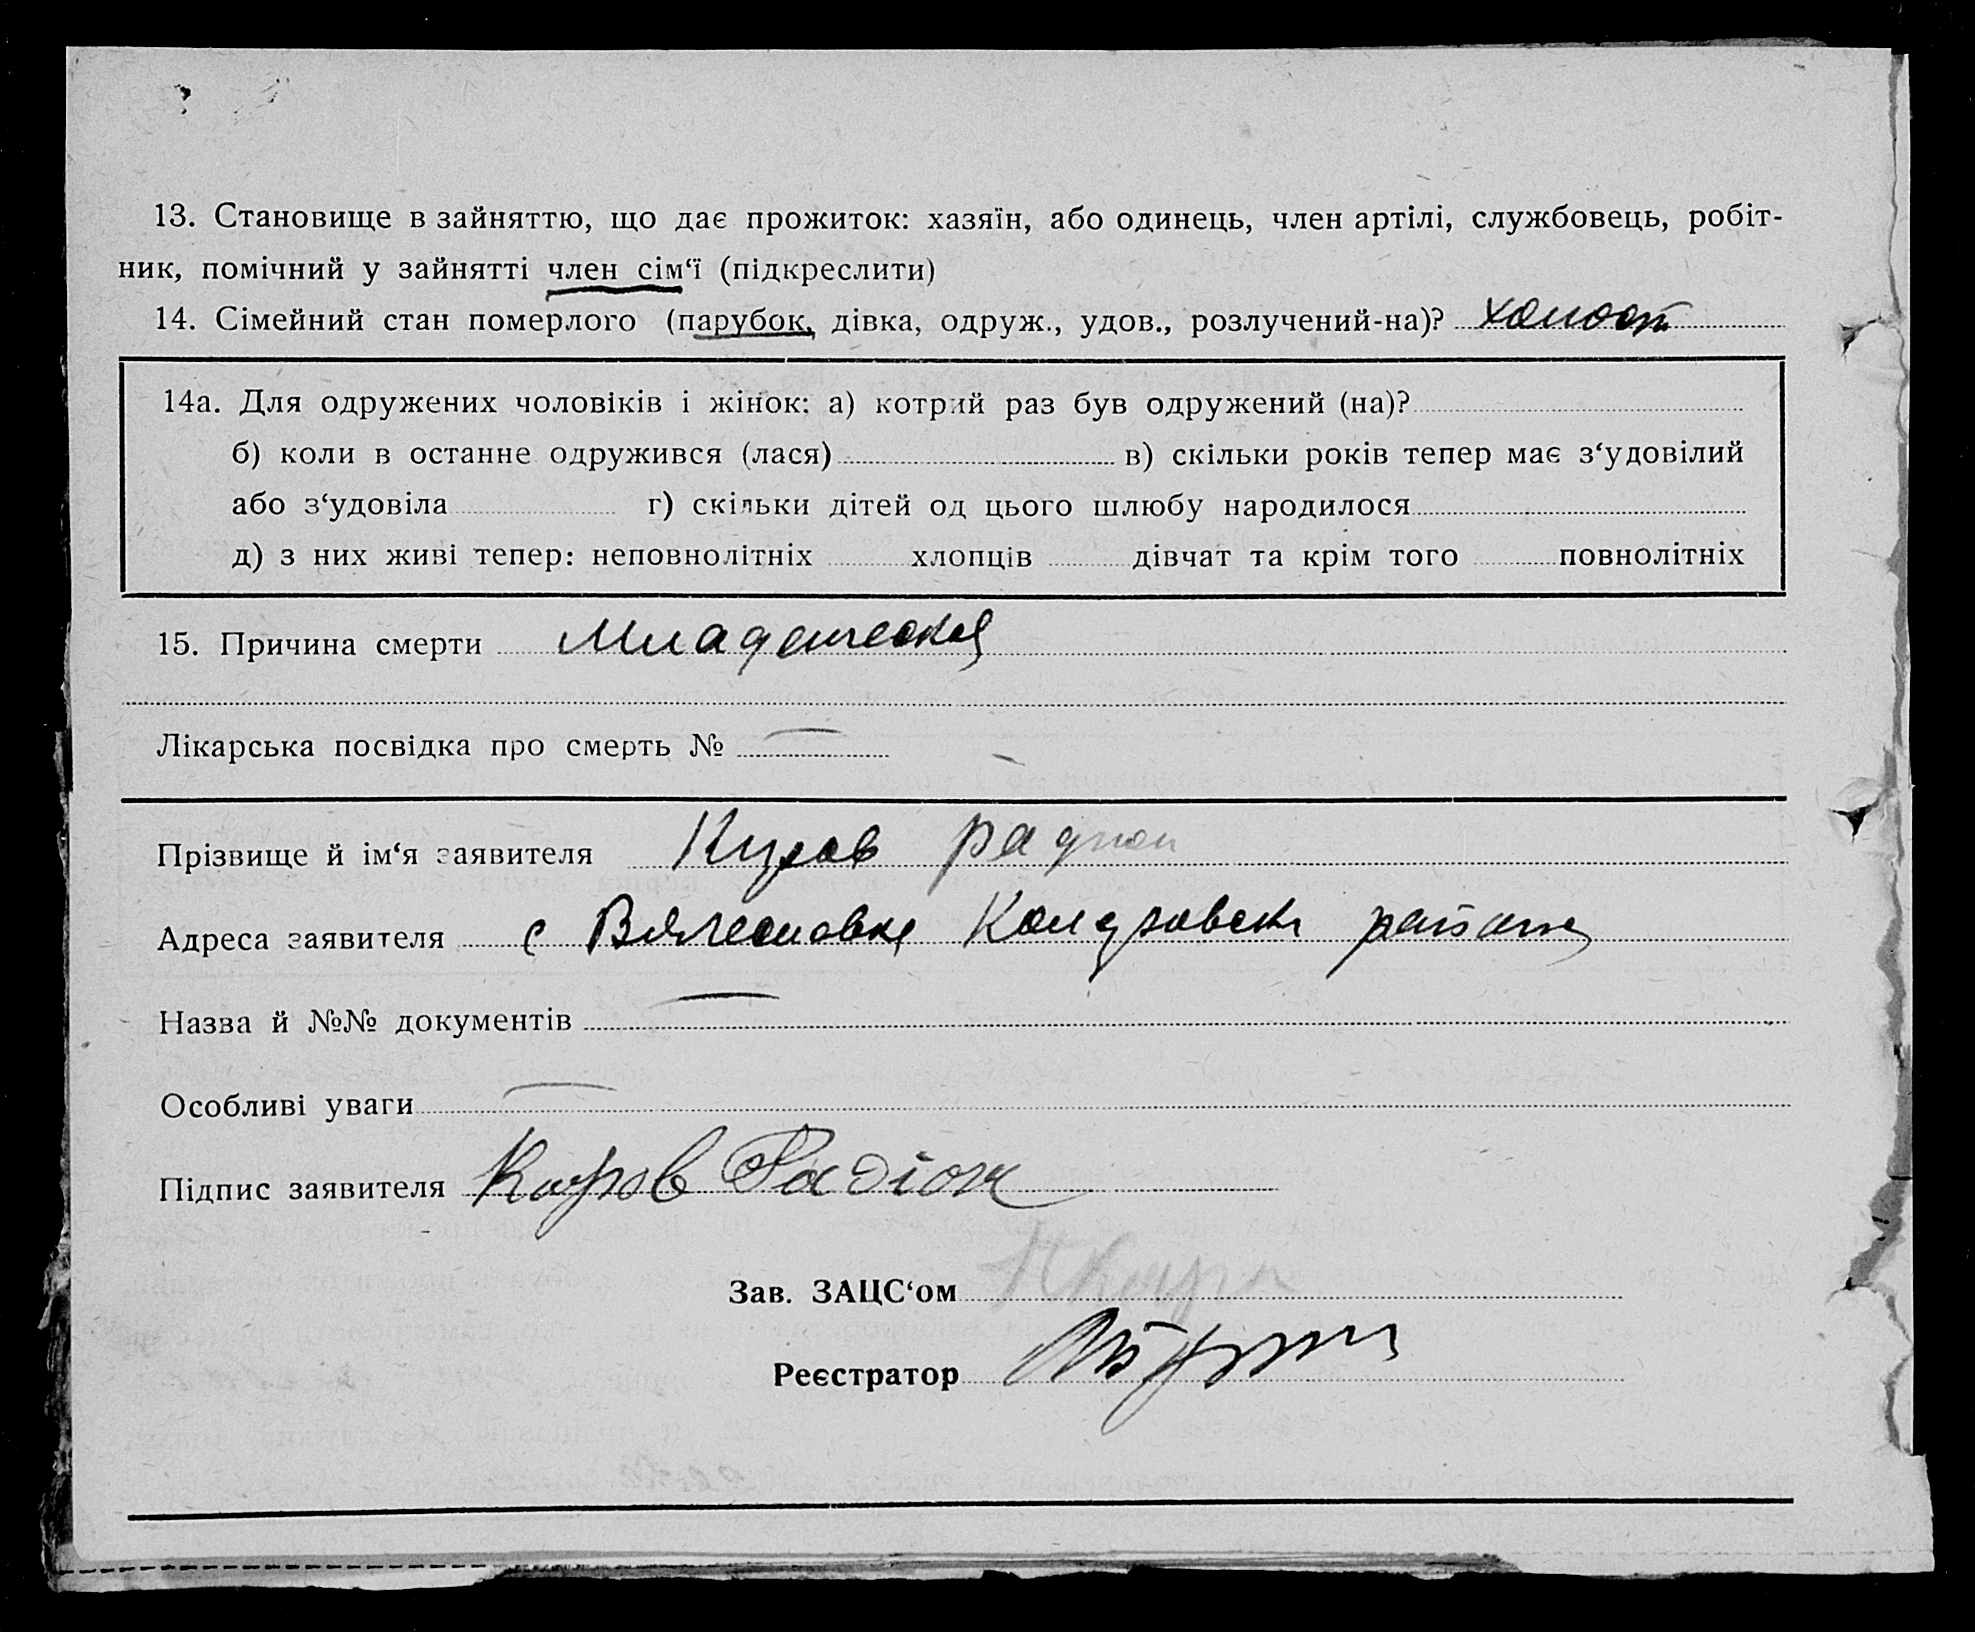 13. Становище в зайняттю, що дає прожиток: хазяїн, або одинець, член артілі, службовець, робіт-
ник, помічний у зайнятті член сім‘ї (підкреслити)
14. Сімейний стан померлого (парубок, дівка, одруж., удов., розлучений-на)? холост
14а. Для одружених чоловіків і жінок: а) котрий раз був одружений (на)?
б) коли в останне одружився (лася) в) скільки років тепер має з‘удовілий
або з‘удовіла г) скільки дітей од цього шлюбу народилося
д) з них живі тепер: неповнолітніх хлопців дівчат та крім того повнолітніх
15. Причина смерти Младенческая
Лікарська посвідка про смерть № —
Прізвище й ім‘я заявителя Радион
Адреса заявителя с района
Назва й №№ документів —
Особливі уваги —
Підпис заявителя Радіон
Зав. ЗАЦС‘ом
Реєстратор